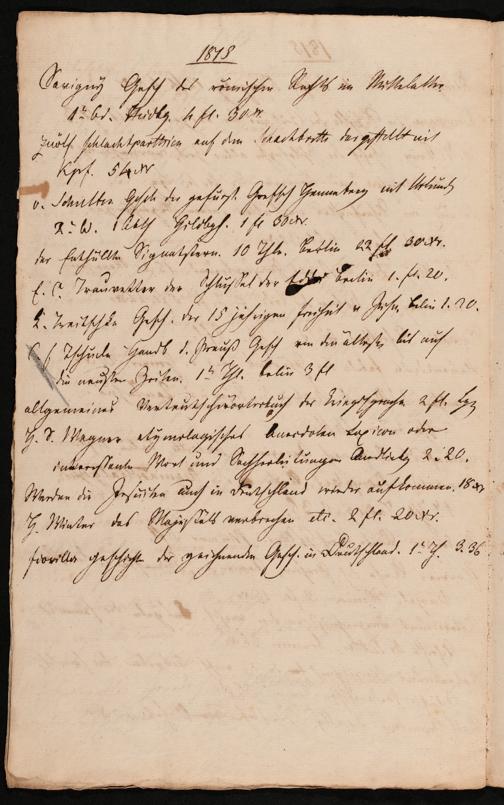 1818
Savigny Gesch des römischen Rechts im Mittelalter
1r bd. 4 fl. 30 xr
Zwölf Schlachtparthien auf dem dargestellt mit
Kpf. 54 xr
v. Schultes Gesch der gefürst. Grafsch Henneberg mit Urkund
2r b. 1 Abth Hildbgh. 1 fl 30 xr.
der Enthüllte Signatstern. 10 Thle. Berlin 22 fl 30 xr.
E. C. Trautvetter der Schlüssel der Edda Berlin 1. fl. 20.
Gesch. der 15 jährigen Freiheit v Berlin 1. 20.
Handb d. Preuß Gesch von den ältesten bis auf
die neusten Zeiten. 1r Thl. Berlin 3 fl
allgemeines Verteutschwörterbuch der Kriegssprache 2 fl. Lpz
H. S. Wagner etymologisches Anecdoten Lexicon oder
interessante Wort und Sachherleitungen 2. 20.
Werden die Jesuiten auch in Deutschland wieder aufkommen. 18 xr
H. Winter das Majestätsverbrechen etc. 2 fl. 20 xr.
Fiorillo Geschicht der zeichnenden Gesch. in Deutschland. 1r Th. 3. 36